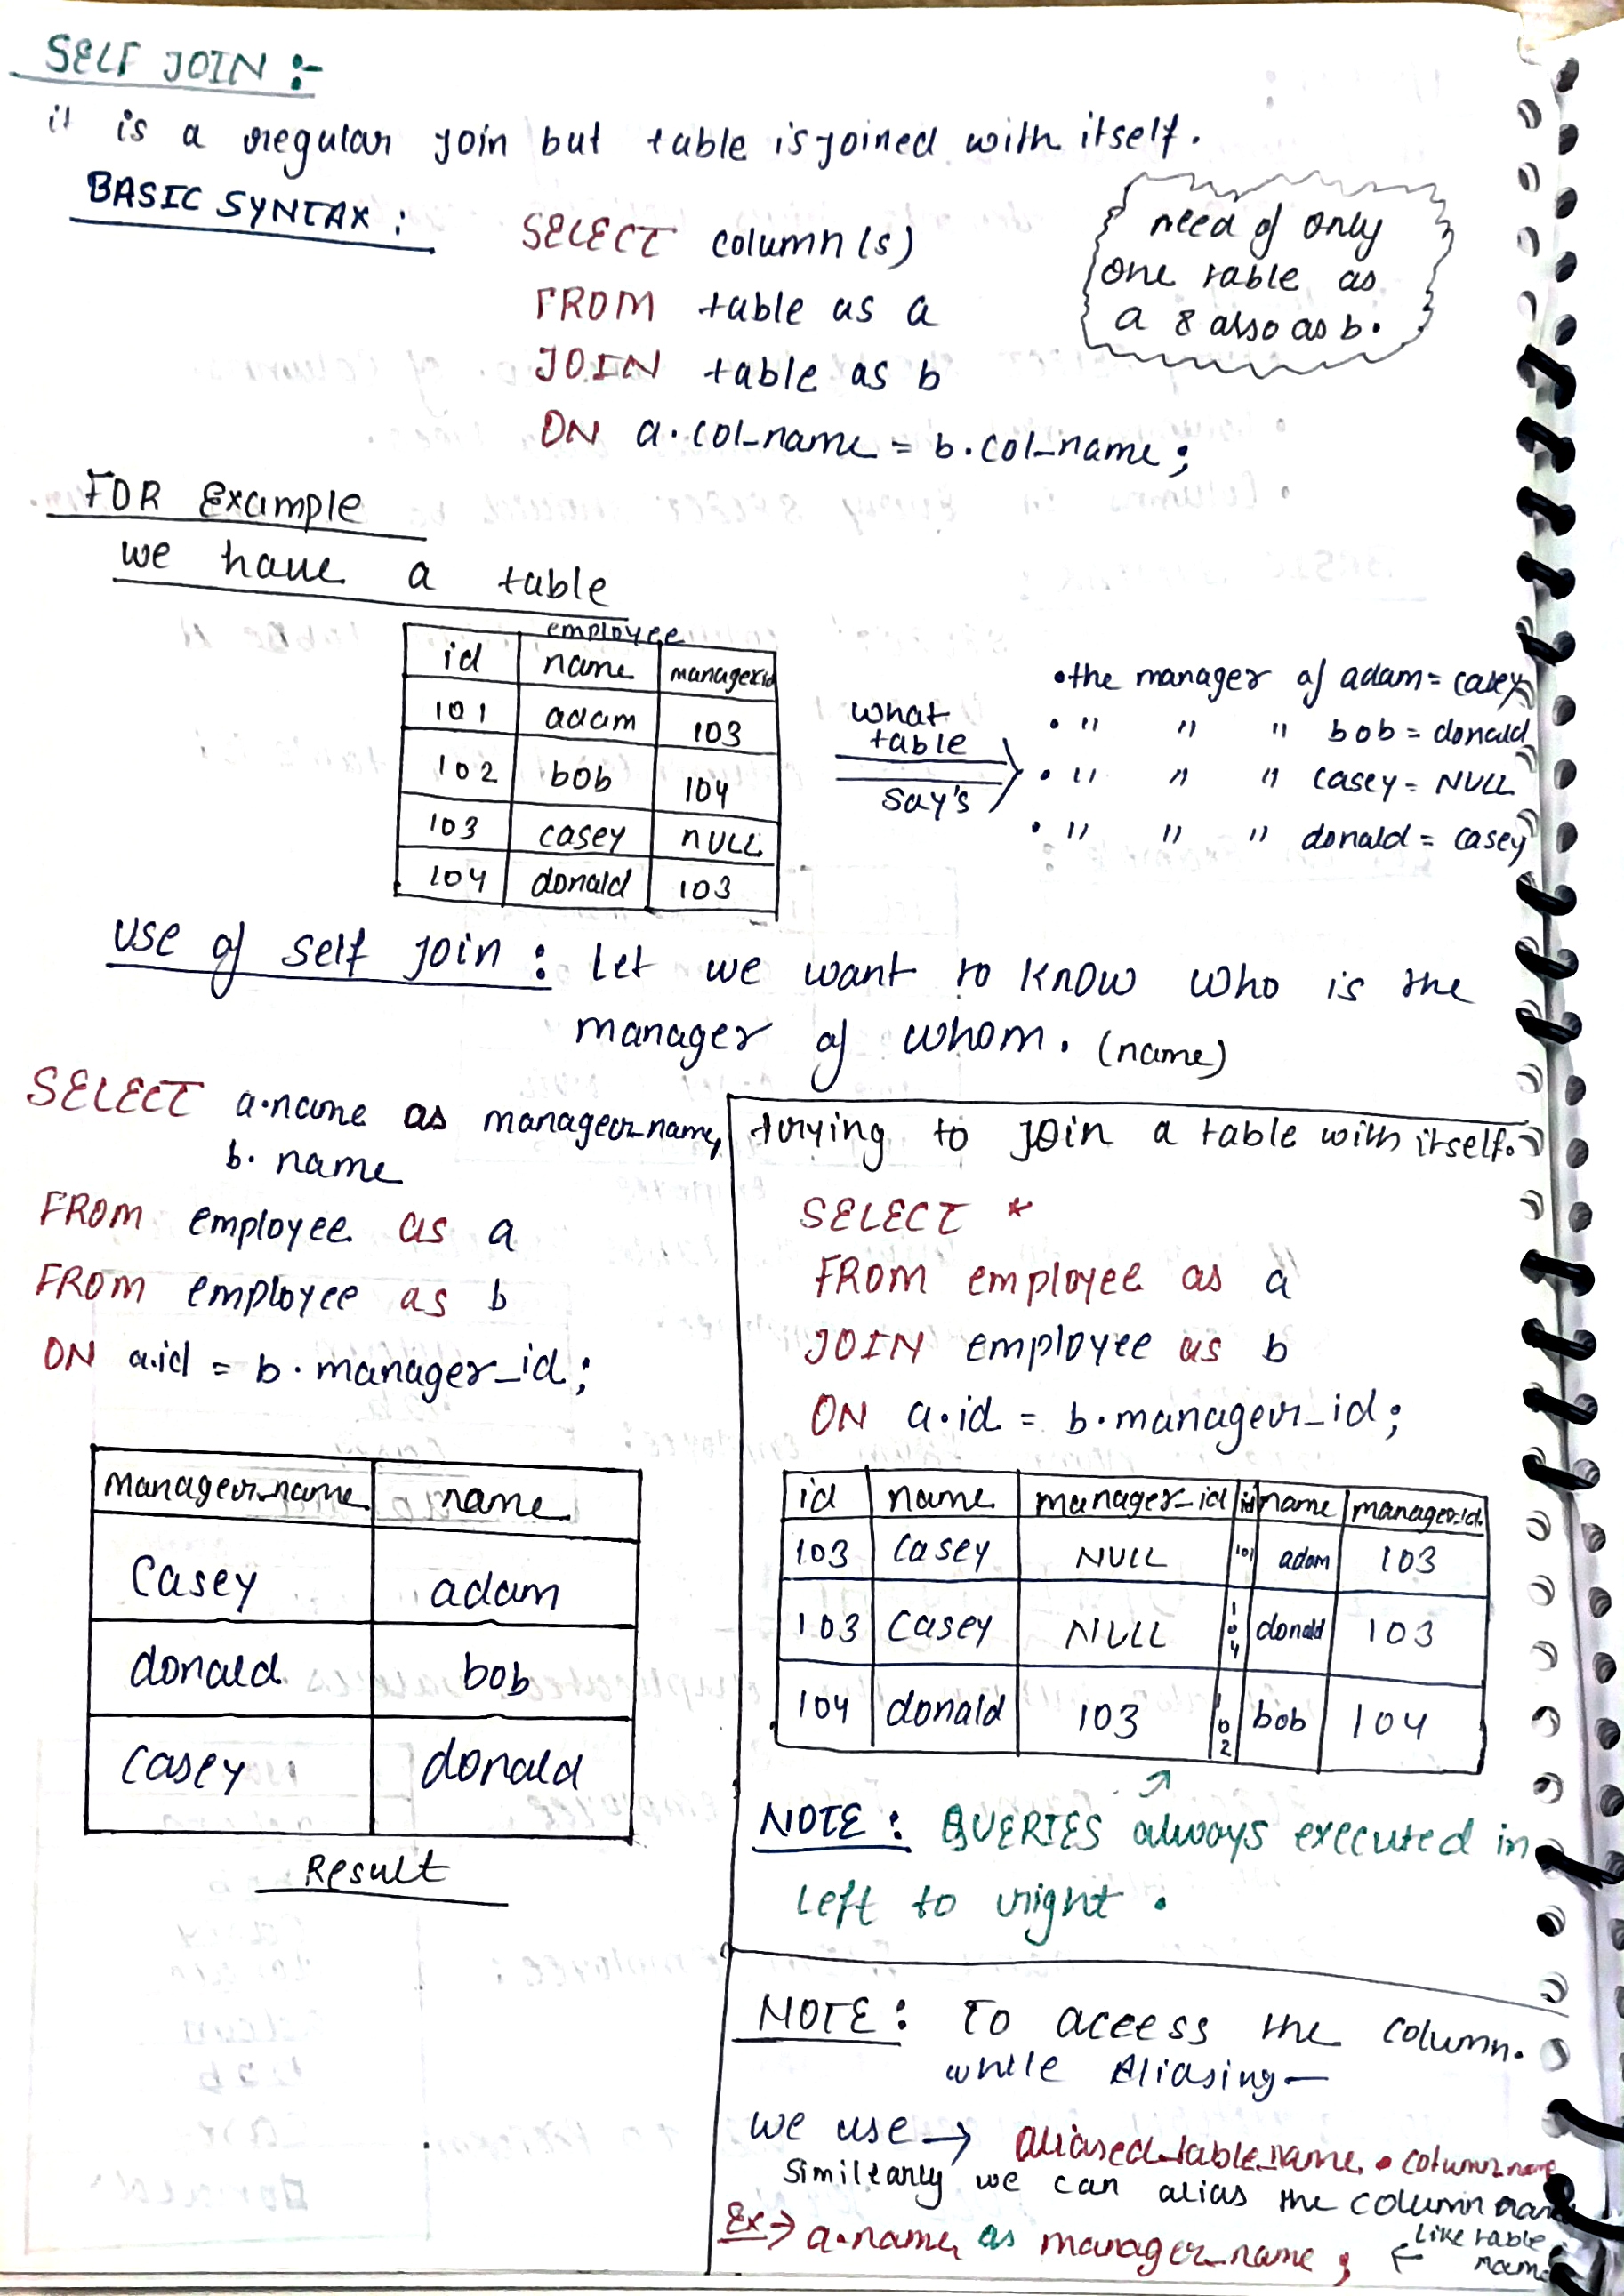 SELF JOIN :-
it is a regular join but table is joined with itself.
BASIC SYNTAX :
SELECT column(s)
FROM table as a
JOIN table as b
ON a.col_name = b.col_name;
need of only
one table as
a & also as b.
FOR Example
we have a table
employee
id name managerid
101 adam 103
102 bob 104
103 casey NULL
104 donald 103
what
table
say's
• the manager of adam = casey
• " " " bob = donald
• " " " casey = NULL
• " " " donald = casey
use of self join : Let we want to know who is the
manager of whom. (name)
SELECT a.name as manager_name,
b.name
FROM employee as a
FROM employee as b
ON a.id = b.manager_id;
manager_name name
Casey adam
donald bob
casey donald
Result
trying to join a table with itself.
SELECT *
FROM employee as a
JOIN employee as b
ON a.id = b.manager_id;
id name manager_id id name manager_id
103 casey NULL 101 adam 103
103 casey NULL 104 donald 103
104 donald 103 102 bob 104
NOTE : QUERIES always executed in
left to right .
NOTE : To aceess the column.
while Aliasing —
we use → aliased_table_name . column name
Similearly we can alias the column name
Ex → a.name as manager_name ; ← Like table
name